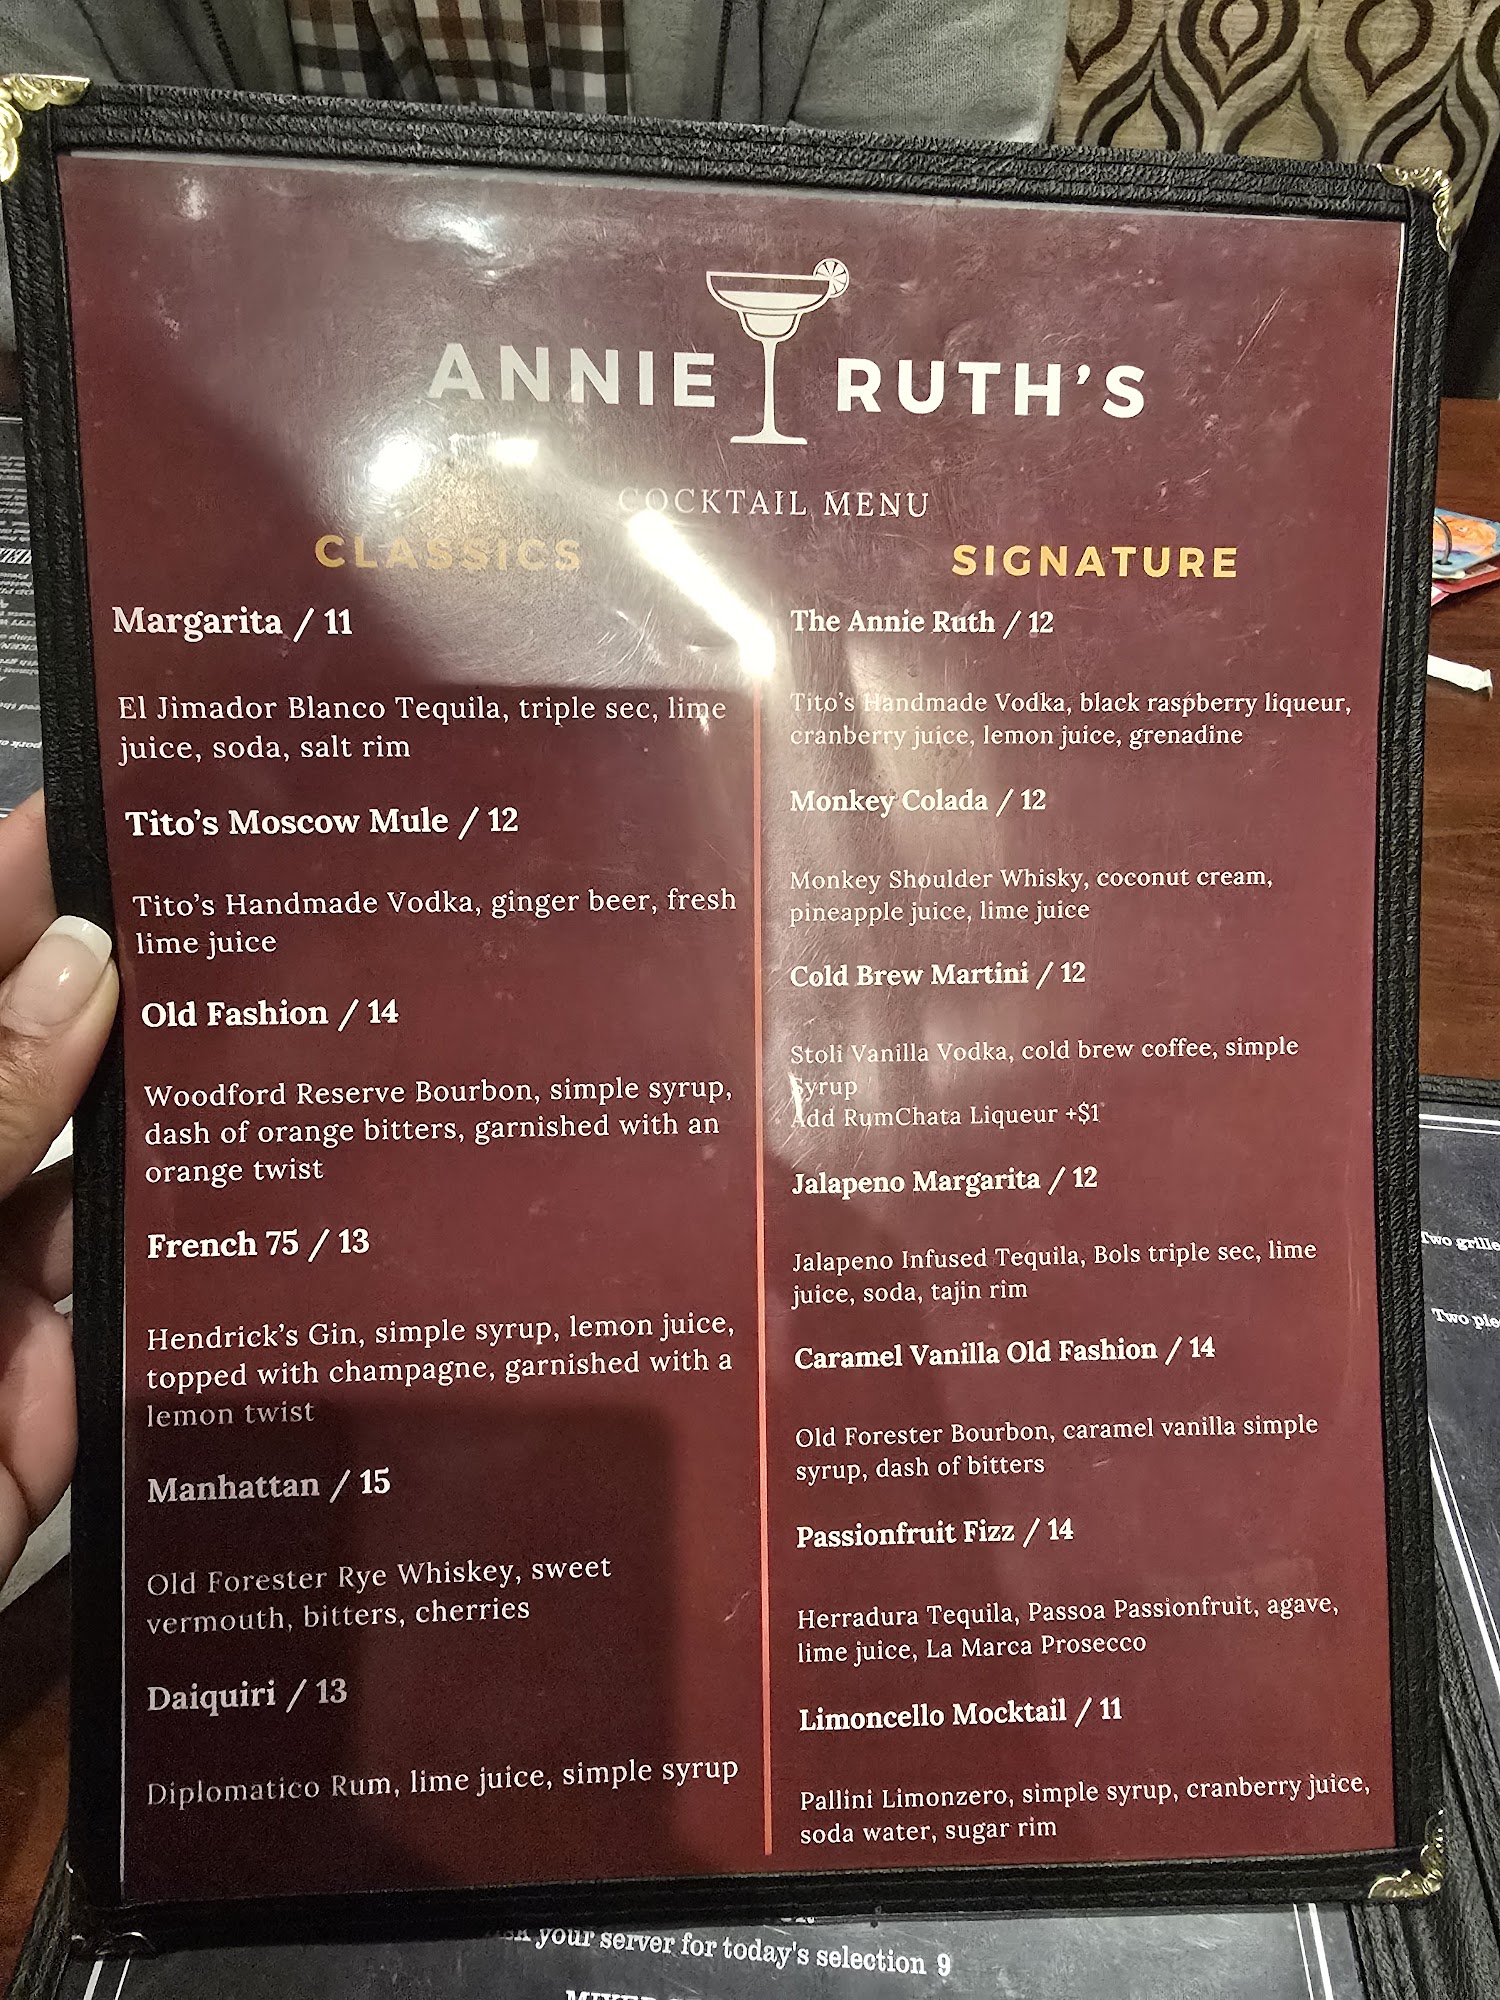 ANNIE RUTH'S
COCKTAIL MENU
CLASSICS
Margarita / 11
El Jimador Blanco Tequila, triple sec, lime
juice, soda, salt rim
Tito's Moscow Mule / 12
Tito's Handmade Vodka, ginger beer, fresh
lime juice
Old Fashion / 14
Woodford Reserve Bourbon, simple syrup,
dash of orange bitters, garnished with an
orange twist
French 75 / 13
Hendrick's Gin, simple syrup, lemon juice,
topped with champagne, garnished with a
lemon twist
Manhattan / 15
Old Forester Rye Whiskey, sweet
vermouth, bitters, cherries
Daiquiri / 13
Diplomatico Rum, lime juice, simple syrup
SIGNATURE
The Annie Ruth / 12
Tito's Handmade Vodka, black raspberry liqueur,
cranberry juice, lemon juice, grenadine
Monkey Colada / 12
Monkey Shoulder Whisky, coconut cream,
pineapple juice, lime juice
Cold Brew Martini / 12
Stoli Vanilla Vodka, cold brew coffee, simple
Syrup
Add RumChata Liqueur +$1
Jalapeno Margarita / 12
Jalapeno Infused Tequila, Bols triple sec, lime
juice, soda, tajin rim
Caramel Vanilla Old Fashion / 14
Old Forester Bourbon, caramel vanilla simple
syrup, dash of bitters
Passionfruit Fizz / 14
Herradura Tequila, Passoa Passionfruit, agave,
lime juice, La Marca Prosecco
Limoncello Mocktail / 11
Pallini Limonzero, simple syrup, cranberry juice,
soda water, sugar rim
your server for today's selection 9
Two
Two